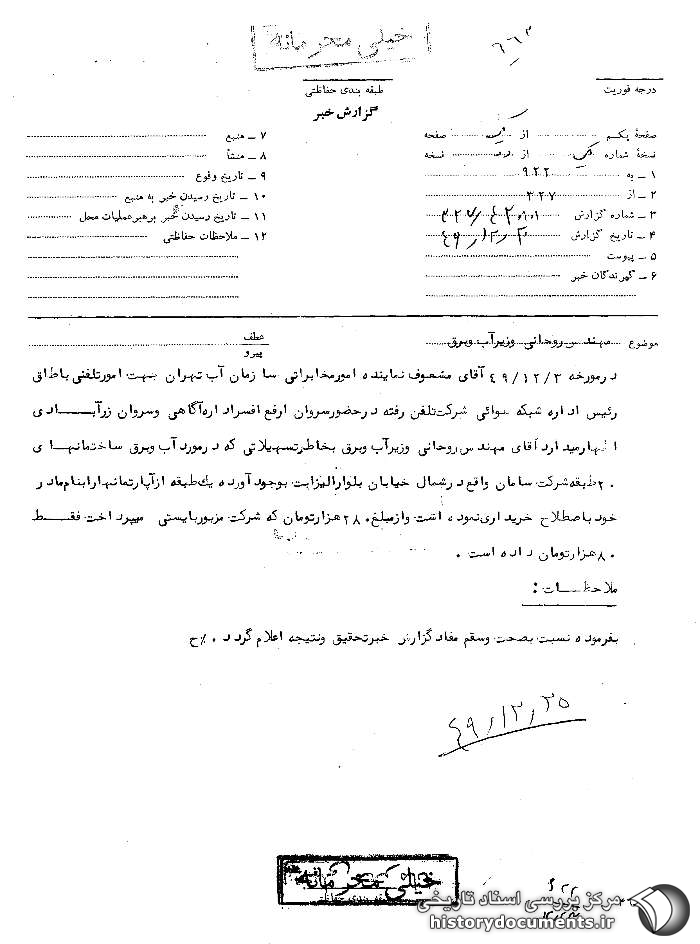 خیلی محرمانه
۶۶۳
درجه فوریت
طبقه بندی حفاظتی
گزارش خبر
صفحهٔ یکم از یک صفحه
نسخهٔ شماره یک از نسخه
۱ ــ به ۹۲۲
۲ ــ از ۳۲۷
۳ ــ شماره گزارش
۴ ــ تاریخ گزارش
۵ ــ پیوست
۶ ــ گیرندگان خبر
۷ ــ منبع
۸ ــ منشأ
۹ ــ تاریخ وقوع
۱۰ ــ تاریخ رسیدن خبر به منبع
۱۱ ــ تاریخ رسیدن خبر برهبر عملیات محل
۱۲ ــ ملاحظات حفاظتی
موضوع مهندس روحانی وزیر آب وبرق
عطف
پیرو
درمورخه ۴۹/۱۲/۳ آقای مشعوف نماینده امورمخابراتی سازمان آب تهران جهت امورتلفنی باطاق
رئیس اداره شبکه هوائی شرکت تلفن رفته درحضورسروان ارفع افسراداره آگاهی وسروان زرآبادی
اظهارمیدارد آقای مهندس روحانی وزیرآب وبرق بخاطرتسهیلاتی که درمورد آب وبرق ساختمانهای
۲۰ طبقه شرکت سامان واقع درشمال خیابان بلوارالیزابت بوجود آورده یك طبقه ازآپارتمانهارابنام مادر
خود باصطلاح خریداری نموده است وازمبلغ ۲۸۰ هزارتومان که شرکت مزبوربایستی میپرداخت فقط
۸۰ هزارتومان داده است .
ملاحظات :
بفرموده نسبت بصحت وسقم مفاد گزارش خبرتحقیق ونتیجه اعلام گردد . %ح
۴۹/۱۲/۲۵
خیلی محرمانه
طبقه بندی حفاظتی
مرکز بررسی اسناد تاریخی
historydocuments.ir